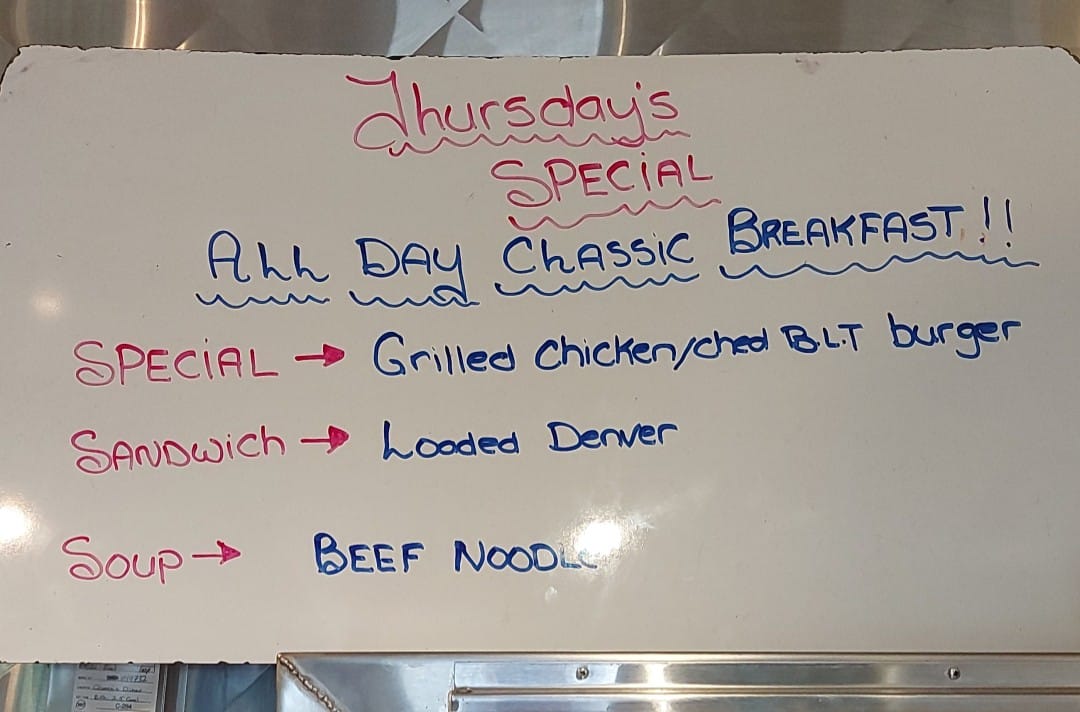 Thursday's
SPECIAL
ALL DAY CLASSIC BREAKFAST!!
SPECIAL → Grilled Chicken/ched B.L.T burger
SANDWich → Loaded Denver
Soup → BEEF NOODLE
C-294